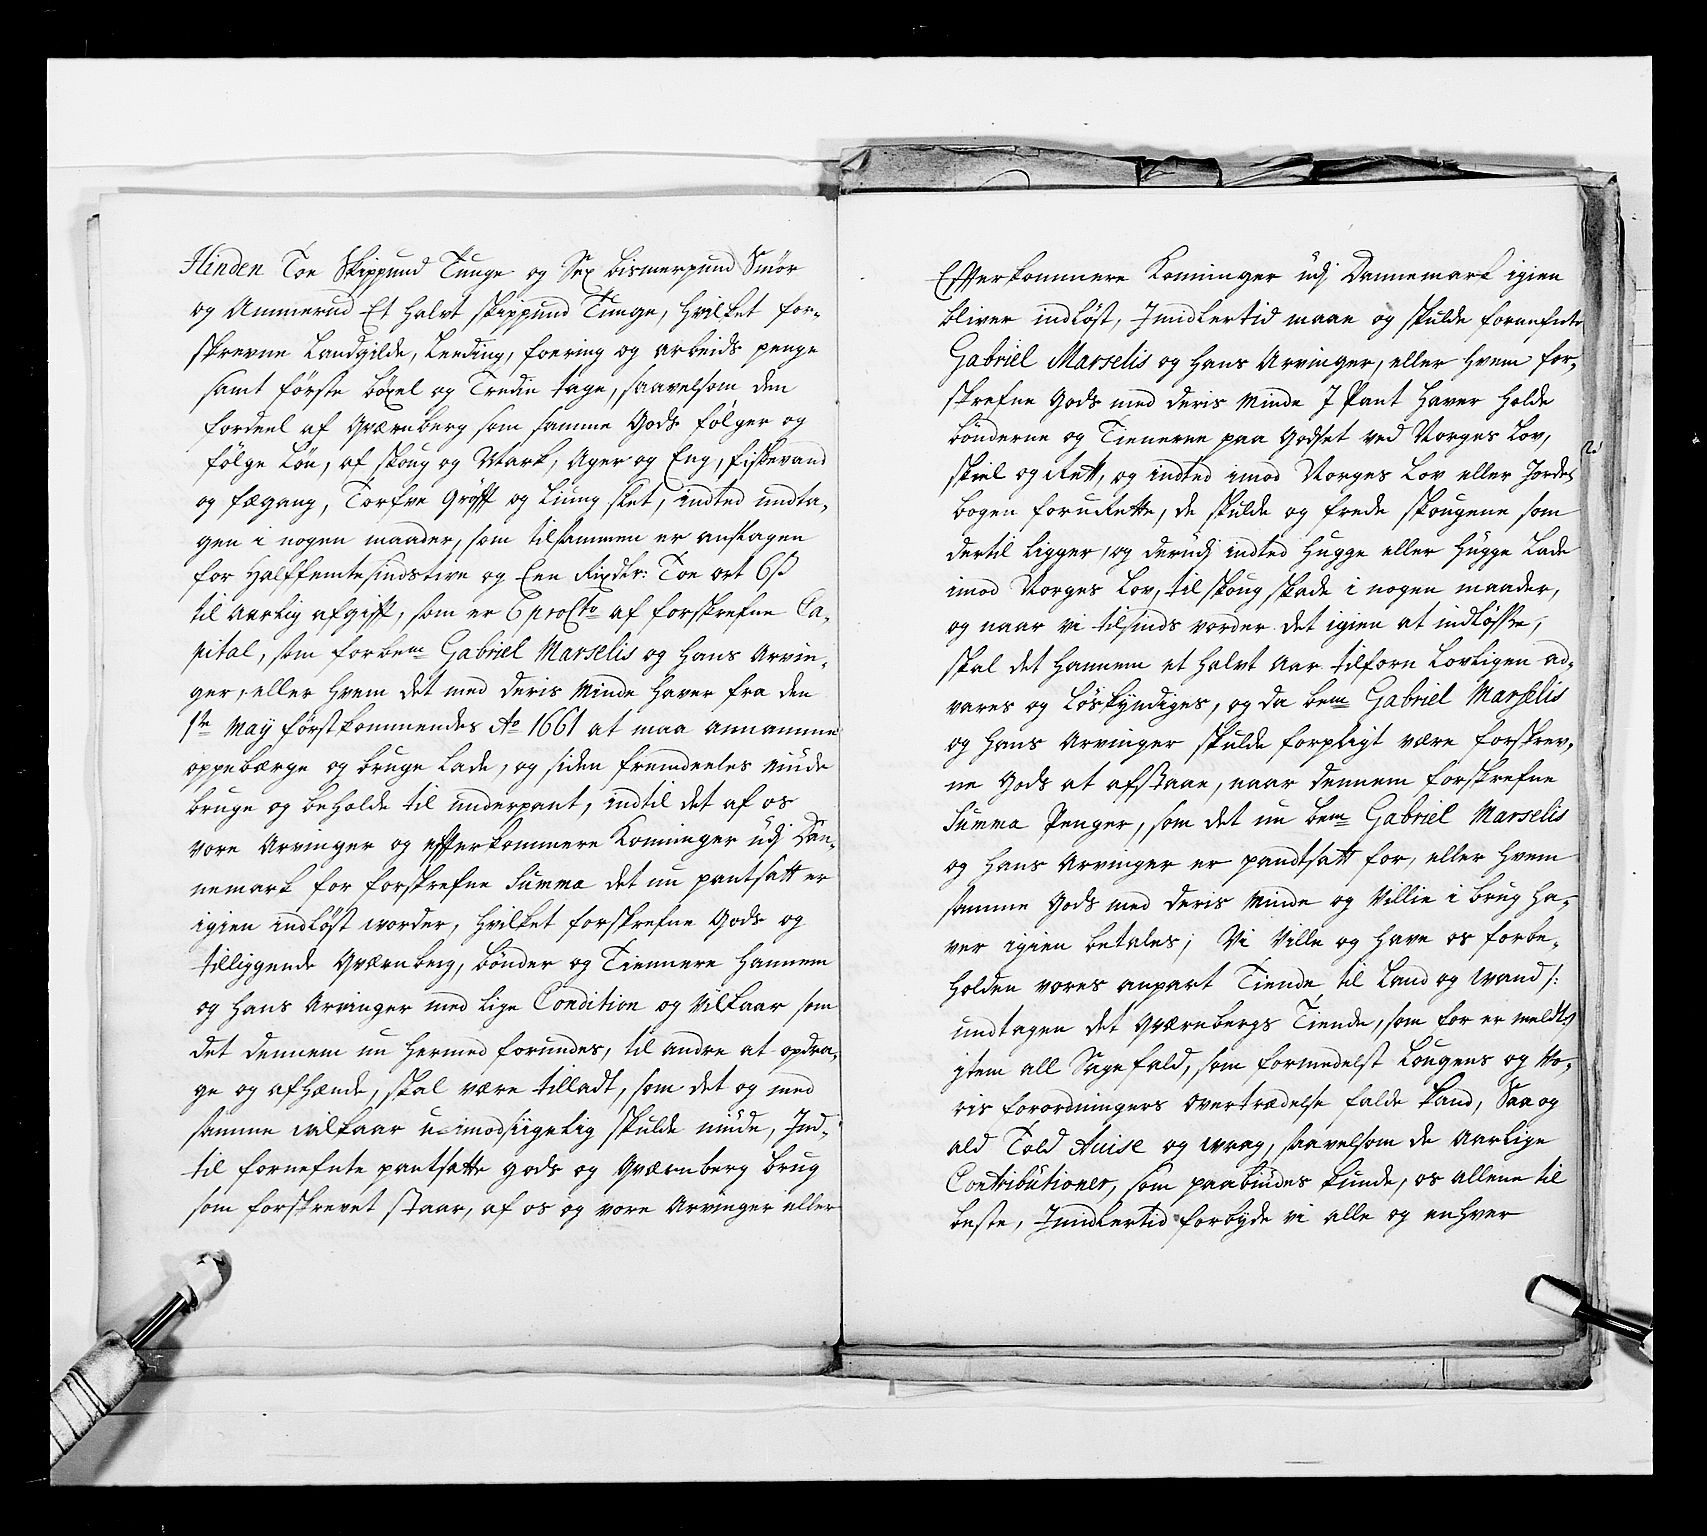 Hinden Toe Skippund Tunge og Sex bismerpund Smör
og Ammerud Et halvt skippund Tunge, hvilket for-
skrevne Landgilde, Leeding, foering og arbeids penge
samt förste böxel og Tredie tage, saavelsom den
fordeel af Qværnberg som samme Gods fölger og
fölge bör, af skoug og Mark, Ager og Eng, fiskevand
og fægang, Törfve Gröfft og Liung slet, indted undta-
gen i nogen maader, som tilsammen er anslagen
for Halffemtesindstive og Een Rixdlr: Toe ort 6 ß
til aarlig afgifft, som er 6 proCto af forskrefne Ca-
pital, som forbem Gabriel Marselis og hans Arvin-
ger, eller hvem det med deris Minde haver fra den
1te May förstkommendes Ao 1661 at maa annamme
oppebærge og bruge lade, og siden fremdeeles niude
bruge og beholde til underpant, indtil det af os
vore Arvinger og effterkommere Konninger udj Dan-
nemark for forskrefne Summa det nu pantsatt er
igien indlöst worder, hvilket forskrefne Gods og
tilliggende Qværnberg, bönder og Tiennere hannem
og hans Arvinger med lige Condition og Vilkaar som
det dennem nu hermed forundes, til andre at opdra-
ge og afhænde, skal være tilladt, som det og med
samme vilkaar uimodsigelig skulde niude, Ind-
til fornefnte pantsatte gods og Qværnberg brug
som forskrevet staar, af os og vore Arvinger eller
Effterkommere Konninger udj Dannemark igien
bliver indlöst, Imidlertid maae og skulde fornefnte
Gabriel Marselis og hans Arvinger, eller hvem for-
skrefne Gods med deris Minde I Pant haver holde
bönderne og Tienerne paa Godset ved Norges Lov,
skiel og Rett, og indted imod Norges Lov eller Jorde-
bogen foruRette, de skulde og frede skougene som
dertil ligger, og derudj indted hugge eller hugge lade
imod Norges Lov, til skoug skade i nogen maader,
og naar vi tilsinds vorder det igien at indlösse,
skal det hannem et halvt Aar tilforn lovligen ad-
vares og löskyndiges, og da bem Gabriel Marselis
og hans Arvinger skulde forpligt være forskrev-
ne Gods at afstaae, naar dennem forskrefne
Summa Penger, som det nu bem Gabriel Marselis
og hans Arvinger er pandtsatt for, eller hvem
samme Gods med deris Minde og Villie i brug ha-
ver igien betales; Vi Ville og have os forbe-
holden vores anpart Tiende til Land og Wand /:
undtagen det Qværnbergs Tiende, som for er meldt :/
item all Sagefald, som formedelst Lougens og Vo-
ris forordningers overtrædelse falde kand, Saa og
ald Told Accise og wrag, saavelsom de Aarlige
Contributioner, som paabiudes kunde, os allene til
beste, Imidlertid forbyde vi alle og enhver